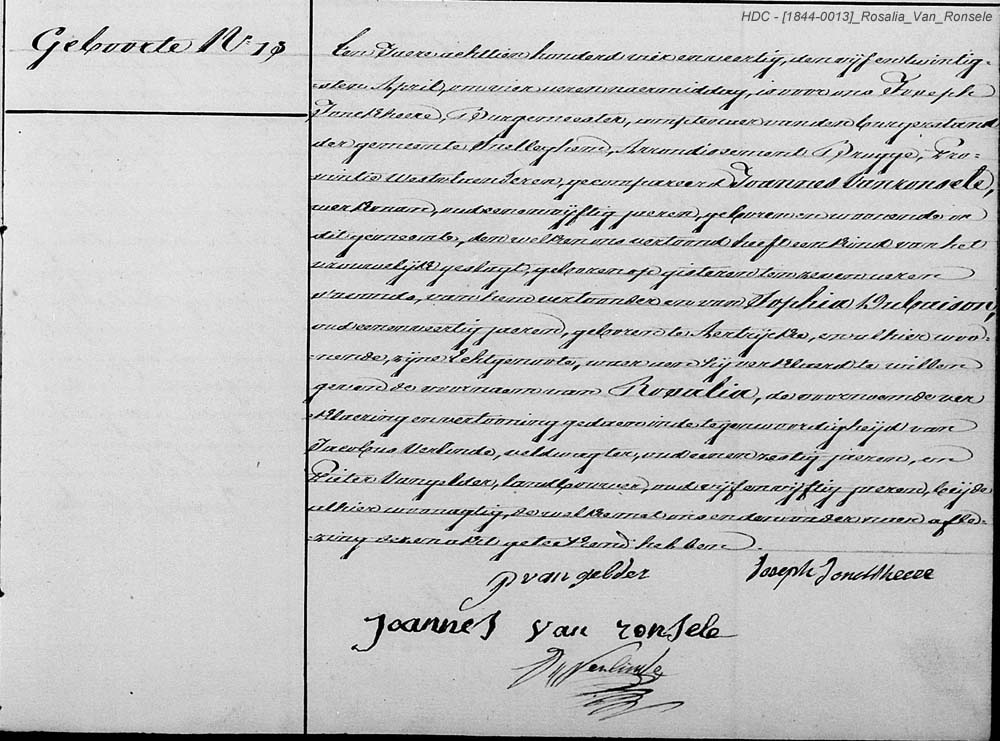 HDC - [1844-0013]_Rosalia_Van_Ronsele
Geboorte N.º 13
Een Jaere achttien honderd vier en veertig, den vyf en twintig-
sten April, om vier uren naermiddag, is voor ons Joseph
Jonckheere, Burgemeester, van den burgerstand
der gemeente Snelleghem, Arrondissement Brugge, Pro-
vintie Westvlaenderen, gecompareerd Joannes Vanronsele,
werkman, oud een en vyftig jaeren, geboren en woonende in
dit gemeente, den welken ons vertoond heeft een kind van het
vrouwelijk geslagt, geboren op gisteren ten zeven uren
s'avonds, van hem vertoonder en van Sophia Dubuison,
oud een en veertig jaeren, geboren te Aertrijcke, en alhier woo-
nende, zyne Echtgenoote, waer aen hy verklaerd te willen
geven de voornaem van Rosalia, de voornoemde ver
klaering en vertooning gedaen in de tegenwoordigheijd van
Jacobus Verlinde, veldwagter, oud een en zestig jaeren, en
Pieter Vangelder, landbouwer, oud vyf en vyftig jaeren, beijde
alhier woonagtig, de welke met ons en den vader naer afle-
zing dezen akt geteekend hebben.
p van gelder Joseph Jonckheere
Joannes van ronsele
Verlinde